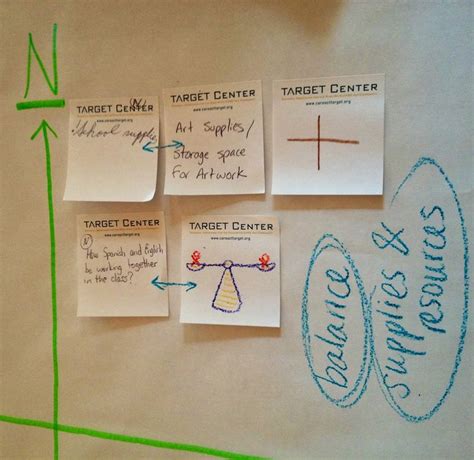 N
TARGET CENTER
www.careesttarget.org
School supplies
TARGET CENTER
www.careesttarget.org
Art Supplies/
Storage space
For Artwork
TARGET CENTER
www.careesttarget.org
TARGET CENTER
www.careesttarget.org
N
How Spanish and English
be working together
in the class?
TARGET CENTER
www.careesttarget.org
balance
supplies &
resources